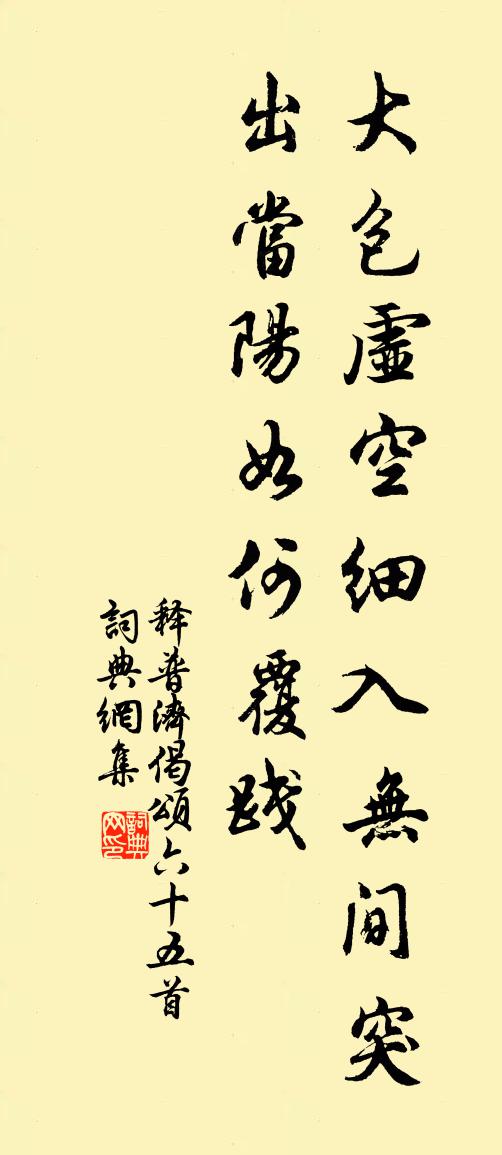 大包虛空細入無間突
出當陽如何覆踐
释普濟偈頌六十五首
詞典網集
詞典网印